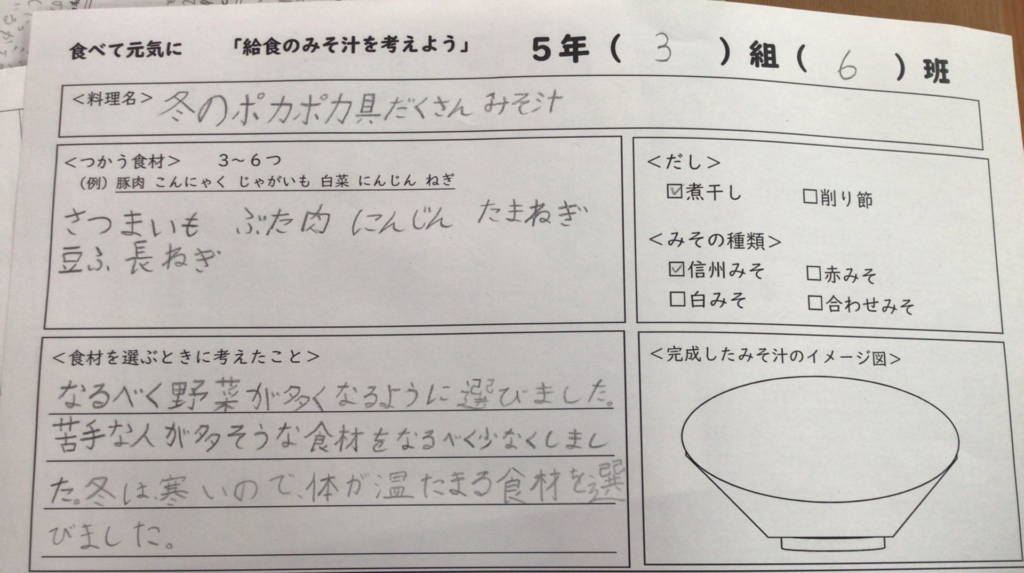 食べて元気に 「給食のみそ汁を考えよう」 5年( 3 )組( 6 )班
<料理名> 冬のポカポカ具だくさん みそ汁
<つかう食材> 3~6つ
(例) 豚肉 こんにゃく じゃがいも 白菜 にんじん ねぎ
さつまいも ぶた肉 にんじん たまねぎ
豆ふ 長ねぎ
<だし>
☑煮干し □削り節
<みその種類>
☑信州みそ □赤みそ
□白みそ □合わせみそ
<食材を選ぶときに考えたこと>
なるべく野菜が多くなるように選びました。
苦手な人が多そうな食材をなるべく少なくしまし
た。冬は、寒いので、体が温たまる食材を選
びました。
<完成したみそ汁のイメージ図>